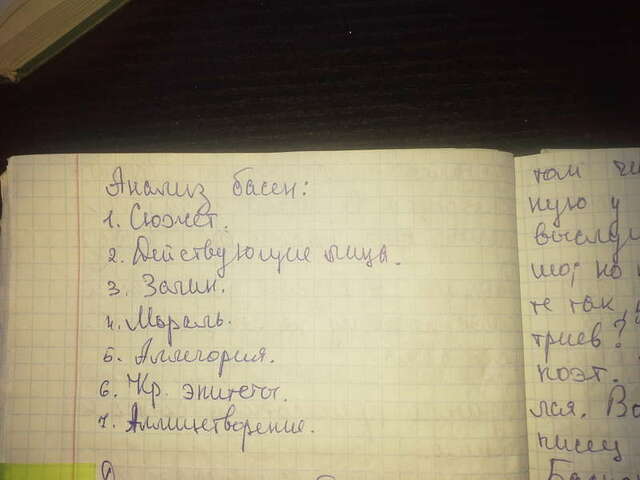 Анализ басен:
1. Сюжет.
2. Действующие лица.
3. Зачин.
4. Мораль.
5. Аллегория.
6. Кр. эпитеты.
7. Аллицетворение.
том
ную у
выслуш
но
те так,
триев?
поэт.
лся. Во
писец
Басн